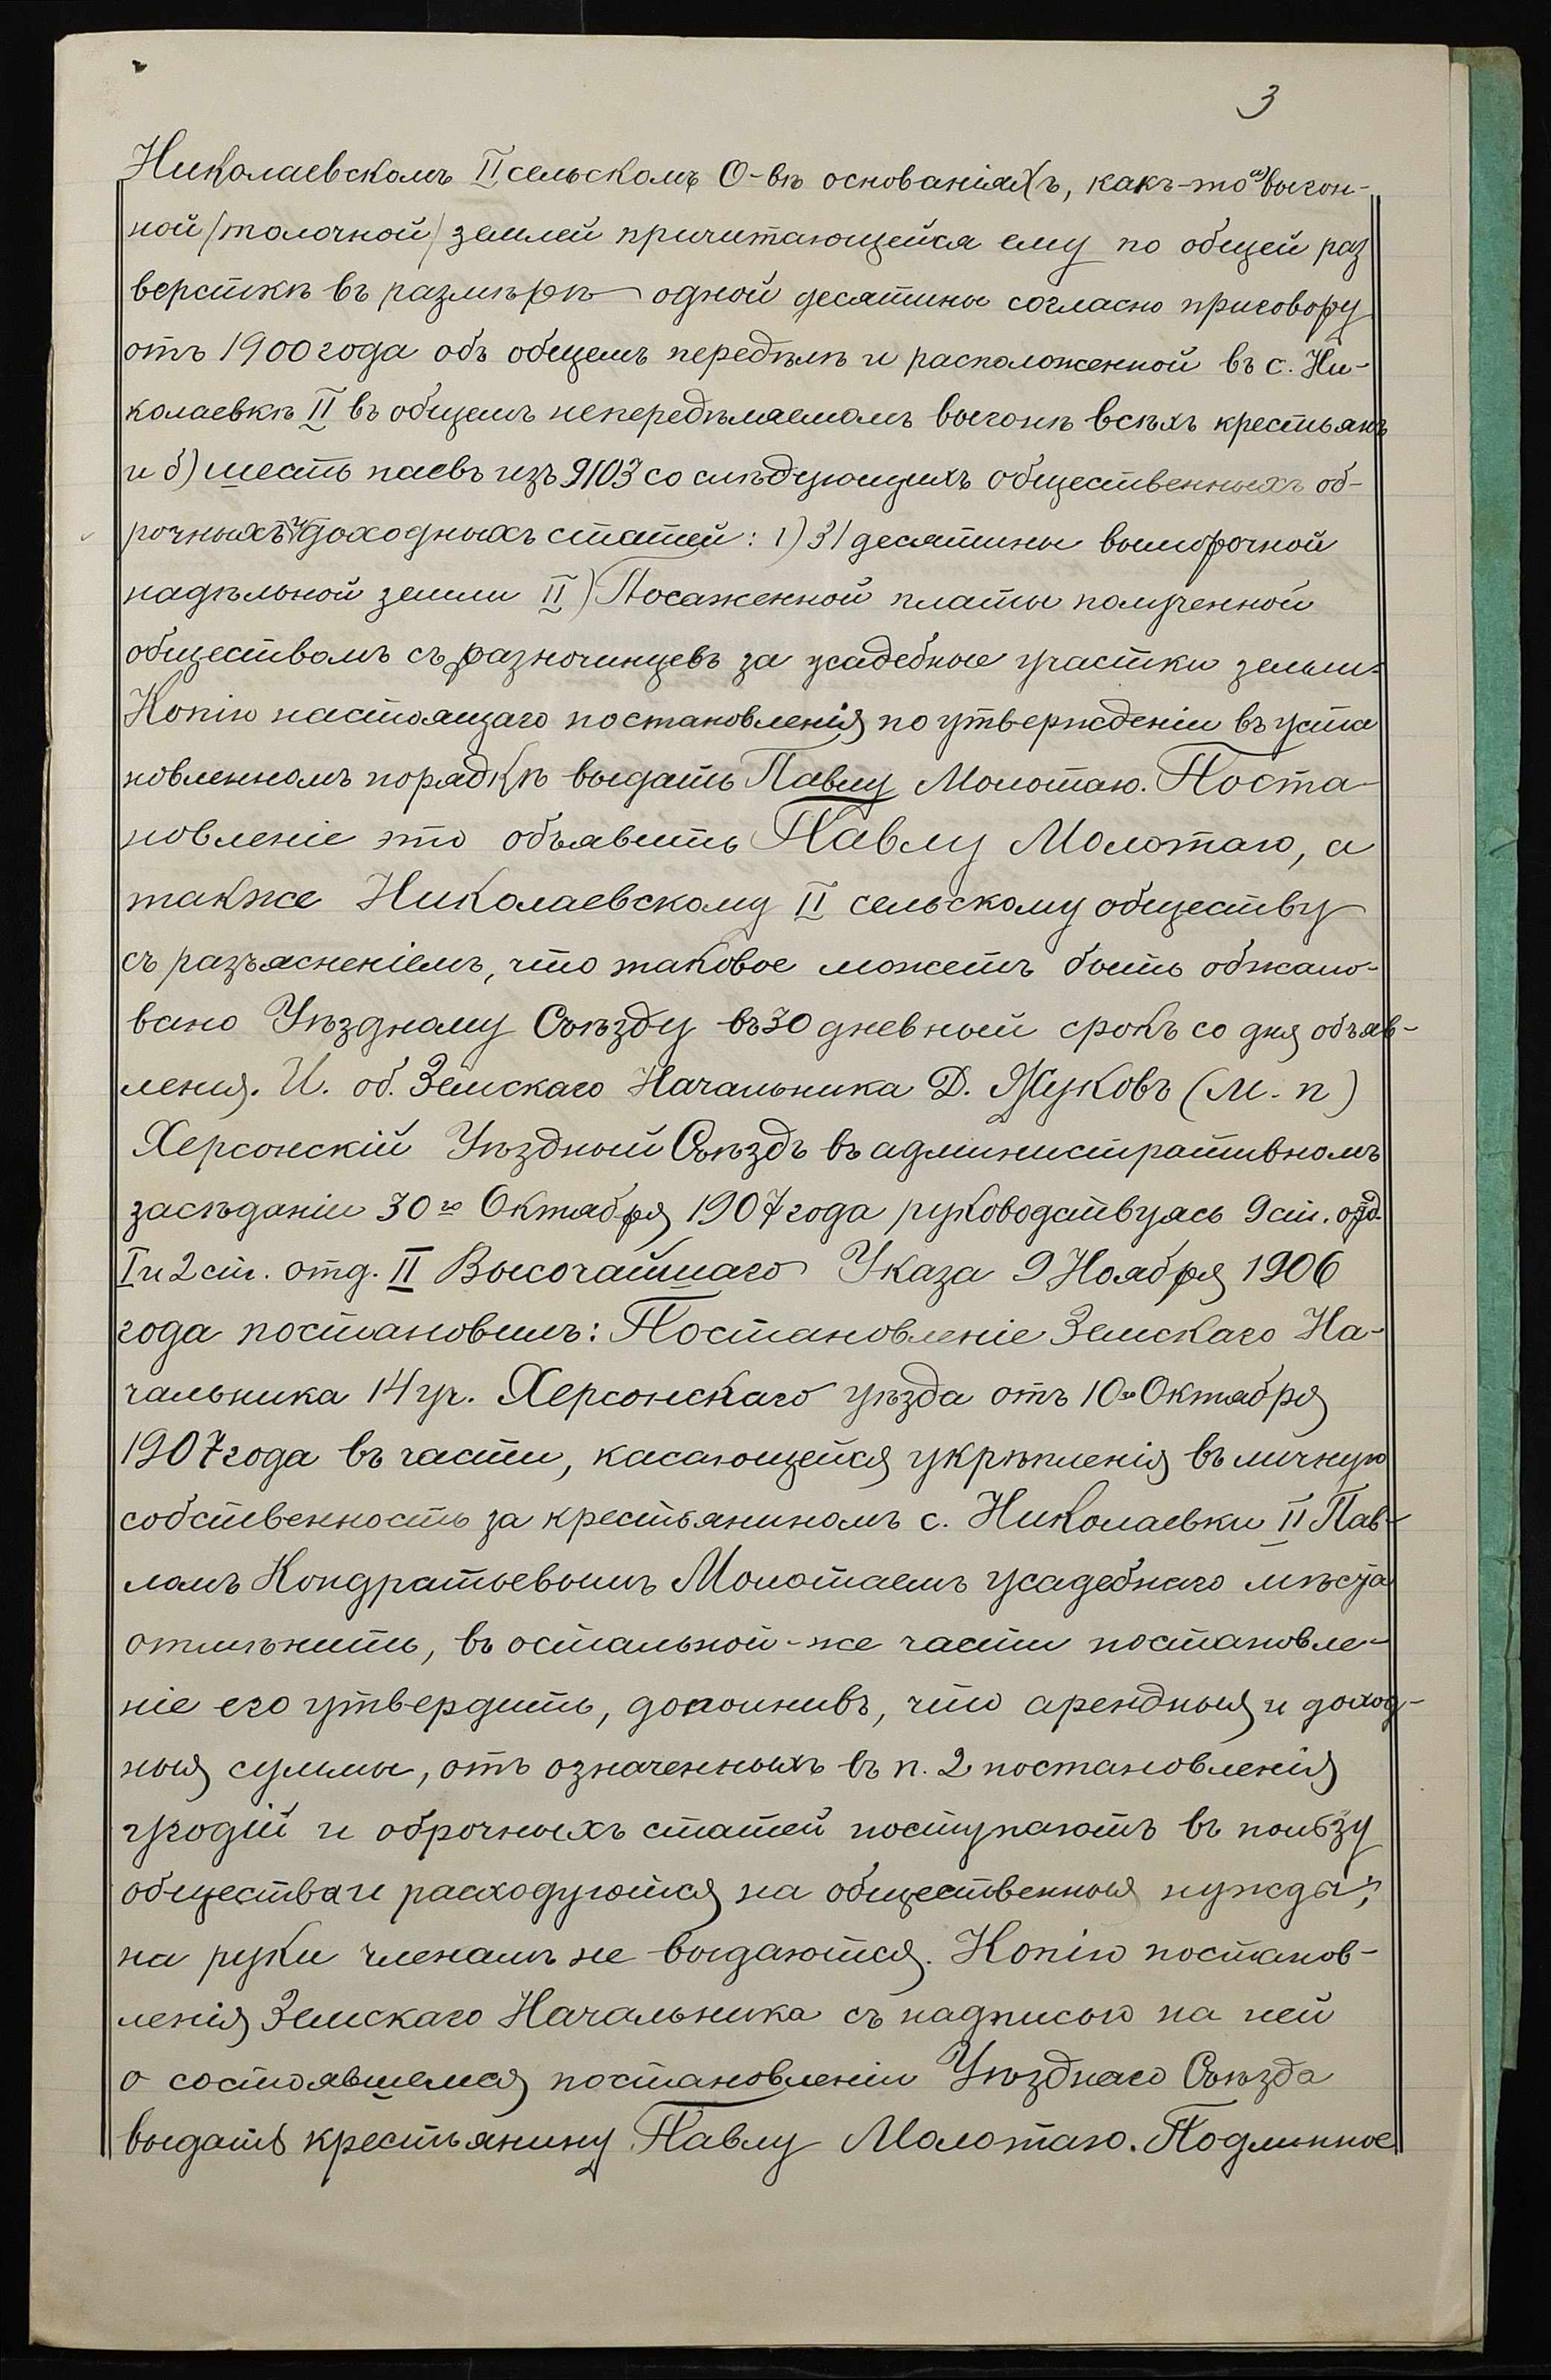 3
Николаевскомъ II сельскомъ О-вѣ основаніяхъ, какъ-то а) выгон-
ной /толочной/ землей причитающейся ему по общей раз
версткѣ въ размѣрѣ одной десятины согласно приговору
отъ 1900 года объ общемъ передѣлѣ и расположенной въ с. Ни-
колаевкѣ II въ общемъ непередѣляемомъ выгонѣ всѣхъ крестьянъ
и б) шесть паевъ изъ 9103 со слѣдующихъ общественныхъ об-
рочныхъ и доходныхъ статей: 1) 31 десятины выморочной
надѣльной земли II) Посаженной платы полученной
обществомъ съ разночинцевъ за усадебные участки земли.
Копію настоящаго постановленія по утвержденіи въ уста
новленномъ порядкѣ выдать Павлу Молотаю. Поста-
новленіе это объявить Павлу Молотаю, а
также Николаевскому II сельскому обществу
съ разъясненіемъ, что таковое можетъ быть обжало-
вано Уѣздному Съѣзду въ 30 дневный срокъ со дня объяв-
ления. И. об. Земскаго Начальника Д. Жуковъ (м. п)
Херсонскій Уѣздный Съѣздъ въ административномъ
засѣданіи 30го Октября 1907 года руководствуясь 9 ст. отд.
I и 2 ст. отд. II Высочайшаго Указа 9 Ноября 1906
года постановилъ: Постановленіе Земскаго На-
чальника 14 уч. Херсонскаго уѣзда отъ 10го Октября
1907 года въ части, касающейся укрѣпленія въ личную
собственность за крестьяниномъ с. Николаевки II Пав-
ломъ Кондратьевымъ Молотаемъ усадебнаго мѣста
отмѣнить, въ остальной-же части постановле-
ніе его утвердить, дополнивъ, что арендныя и доход-
ныя суммы, отъ означенныхъ въ п. 2 постановленія
угодій и оброчныхъ статей поступаютъ въ пользу
общества и расходуются на общественныя нужды,
на руки членамъ не выдаются. Копію постанов-
ленія Земскаго Начальника съ надписью на ней
о состоявшемся постановленіи Уѣзднаго Съѣзда
выдать крестьянину Павлу Молотаю. Подлинное